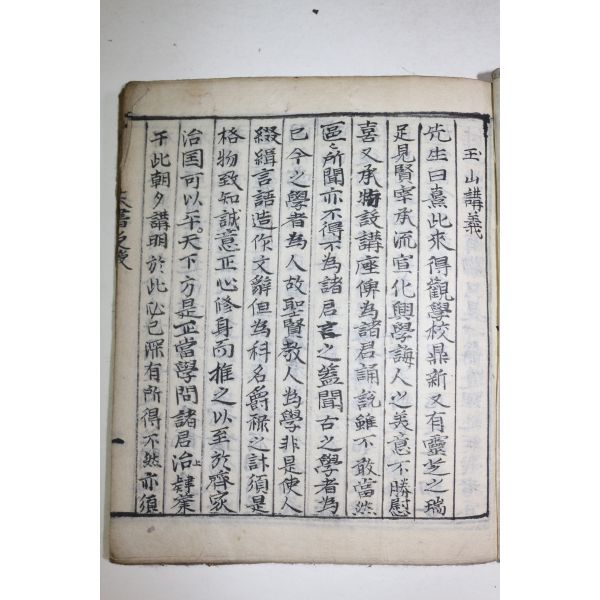 玉山講義
先生曰熹此來得觀學校鼎新又有靈芝之瑞
足見賢宰承流宣化興學誨人之美意不勝慰
喜又承特設講座俾為諸君誦說雖不敢當然
區〻所聞亦不得不為諸君言之盖聞古之學者為
己今之學者為人故聖賢教人為學非是使人
綴緝言語造作文辭但為科名爵祿之計須是
格物致知誠意正心修身而推之以至於齊家
治国可以平天下方是正當學問諸君治上肄業
于此朝夕講明於此必已深有所得不然亦須